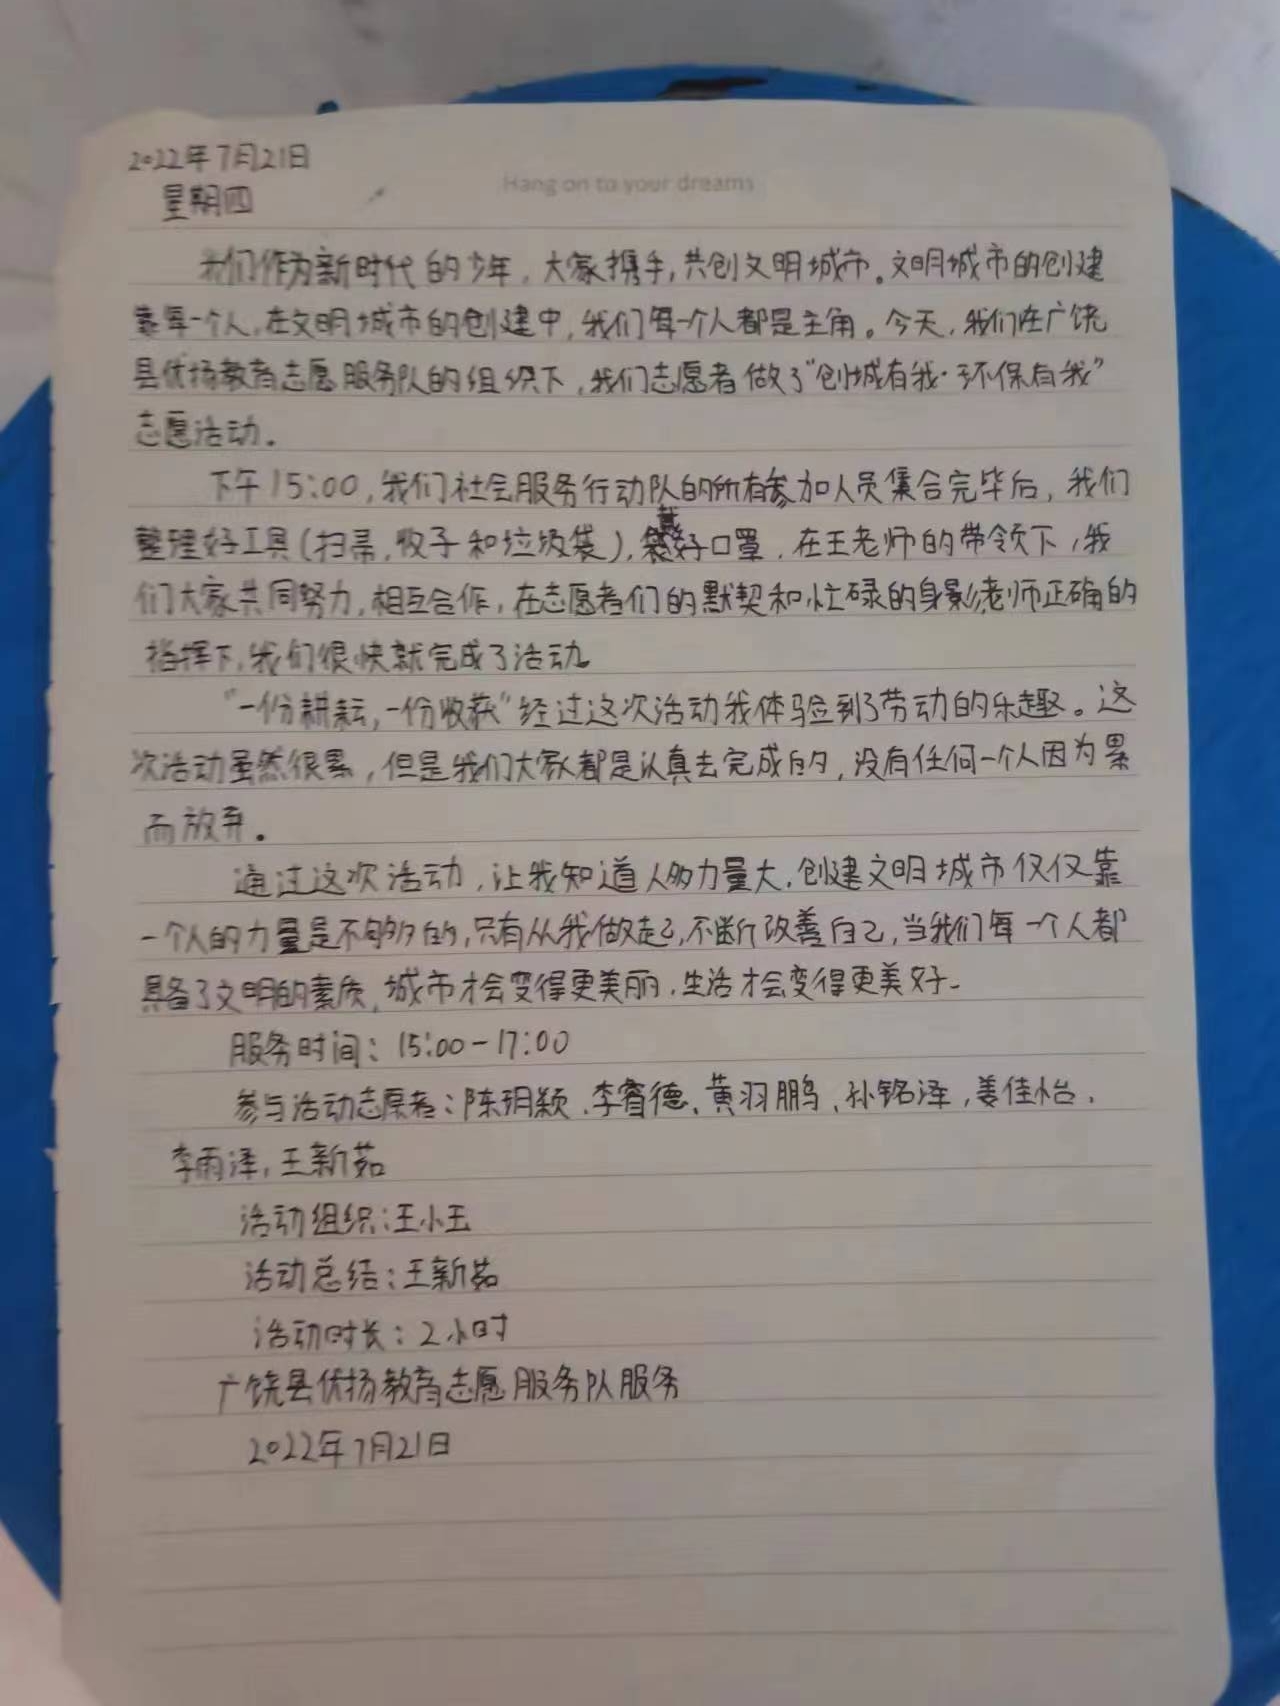 2022年7月21日
Hang on to your dreams
星期四
我们作为新时代的少年，大家携手，共创文明城市。文明城市的创建
靠每一个人，在文明城市的创建中，我们每一个人都是主角。今天，我们在广饶
县优扬教育志愿服务队的组织下，我们志愿者做了“创城有我·环保有我”
志愿活动。
下午15:00，我们社会服务行动队的所有参加人员集合完毕后，我们
整理好工具(扫帚，收子和垃圾袋)，戴好口罩，在王老师的带领下，我
们大家共同努力，相互合作，在志愿者们的默契和忙碌的身影，老师正确的
指挥下，我们很快就完成了活动。
“一份耕耘，一份收获”经过这次活动我体验到了劳动的乐趣。这
次活动虽然很累，但是我们大家都是认真去完成的，没有任何一个人因为累
而放弃。
通过这次活动，让我知道人多力量大，创建文明城市仅仅靠
一个人的力量是不够的，只有从我做起，不断改善自己，当我们每一个人都
具备了文明的素质，城市才会变得更美丽，生活才会变得更美好。
服务时间：15:00-17:00
参与活动志愿者：陈玥颖、李睿德、黄羽鹏、孙铭泽，姜佳怡、
李雨泽，王新茹
活动组织：王小玉
活动总结：王新茹
活动时长：2小时
广饶县优扬教育志愿服务队服务
2022年7月21日